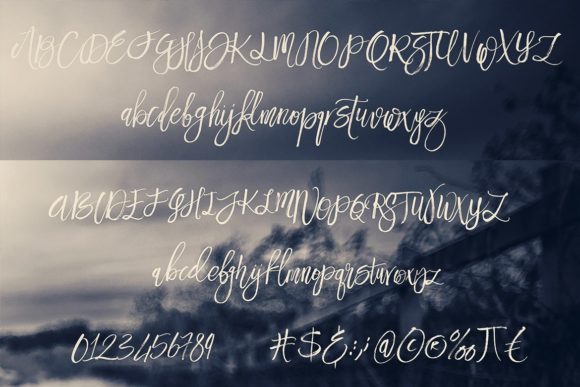 ABCDEFGHIJKLMNOPQRSTUVWXYZ
abcdefghijklmnopqrstuvwxyz
ABCDEFGHIJKLMNOPQRSTUVWXYZ
abcdefghijklmnopqrstuvwxyz
0123456789 #$&:;@©©‰π€